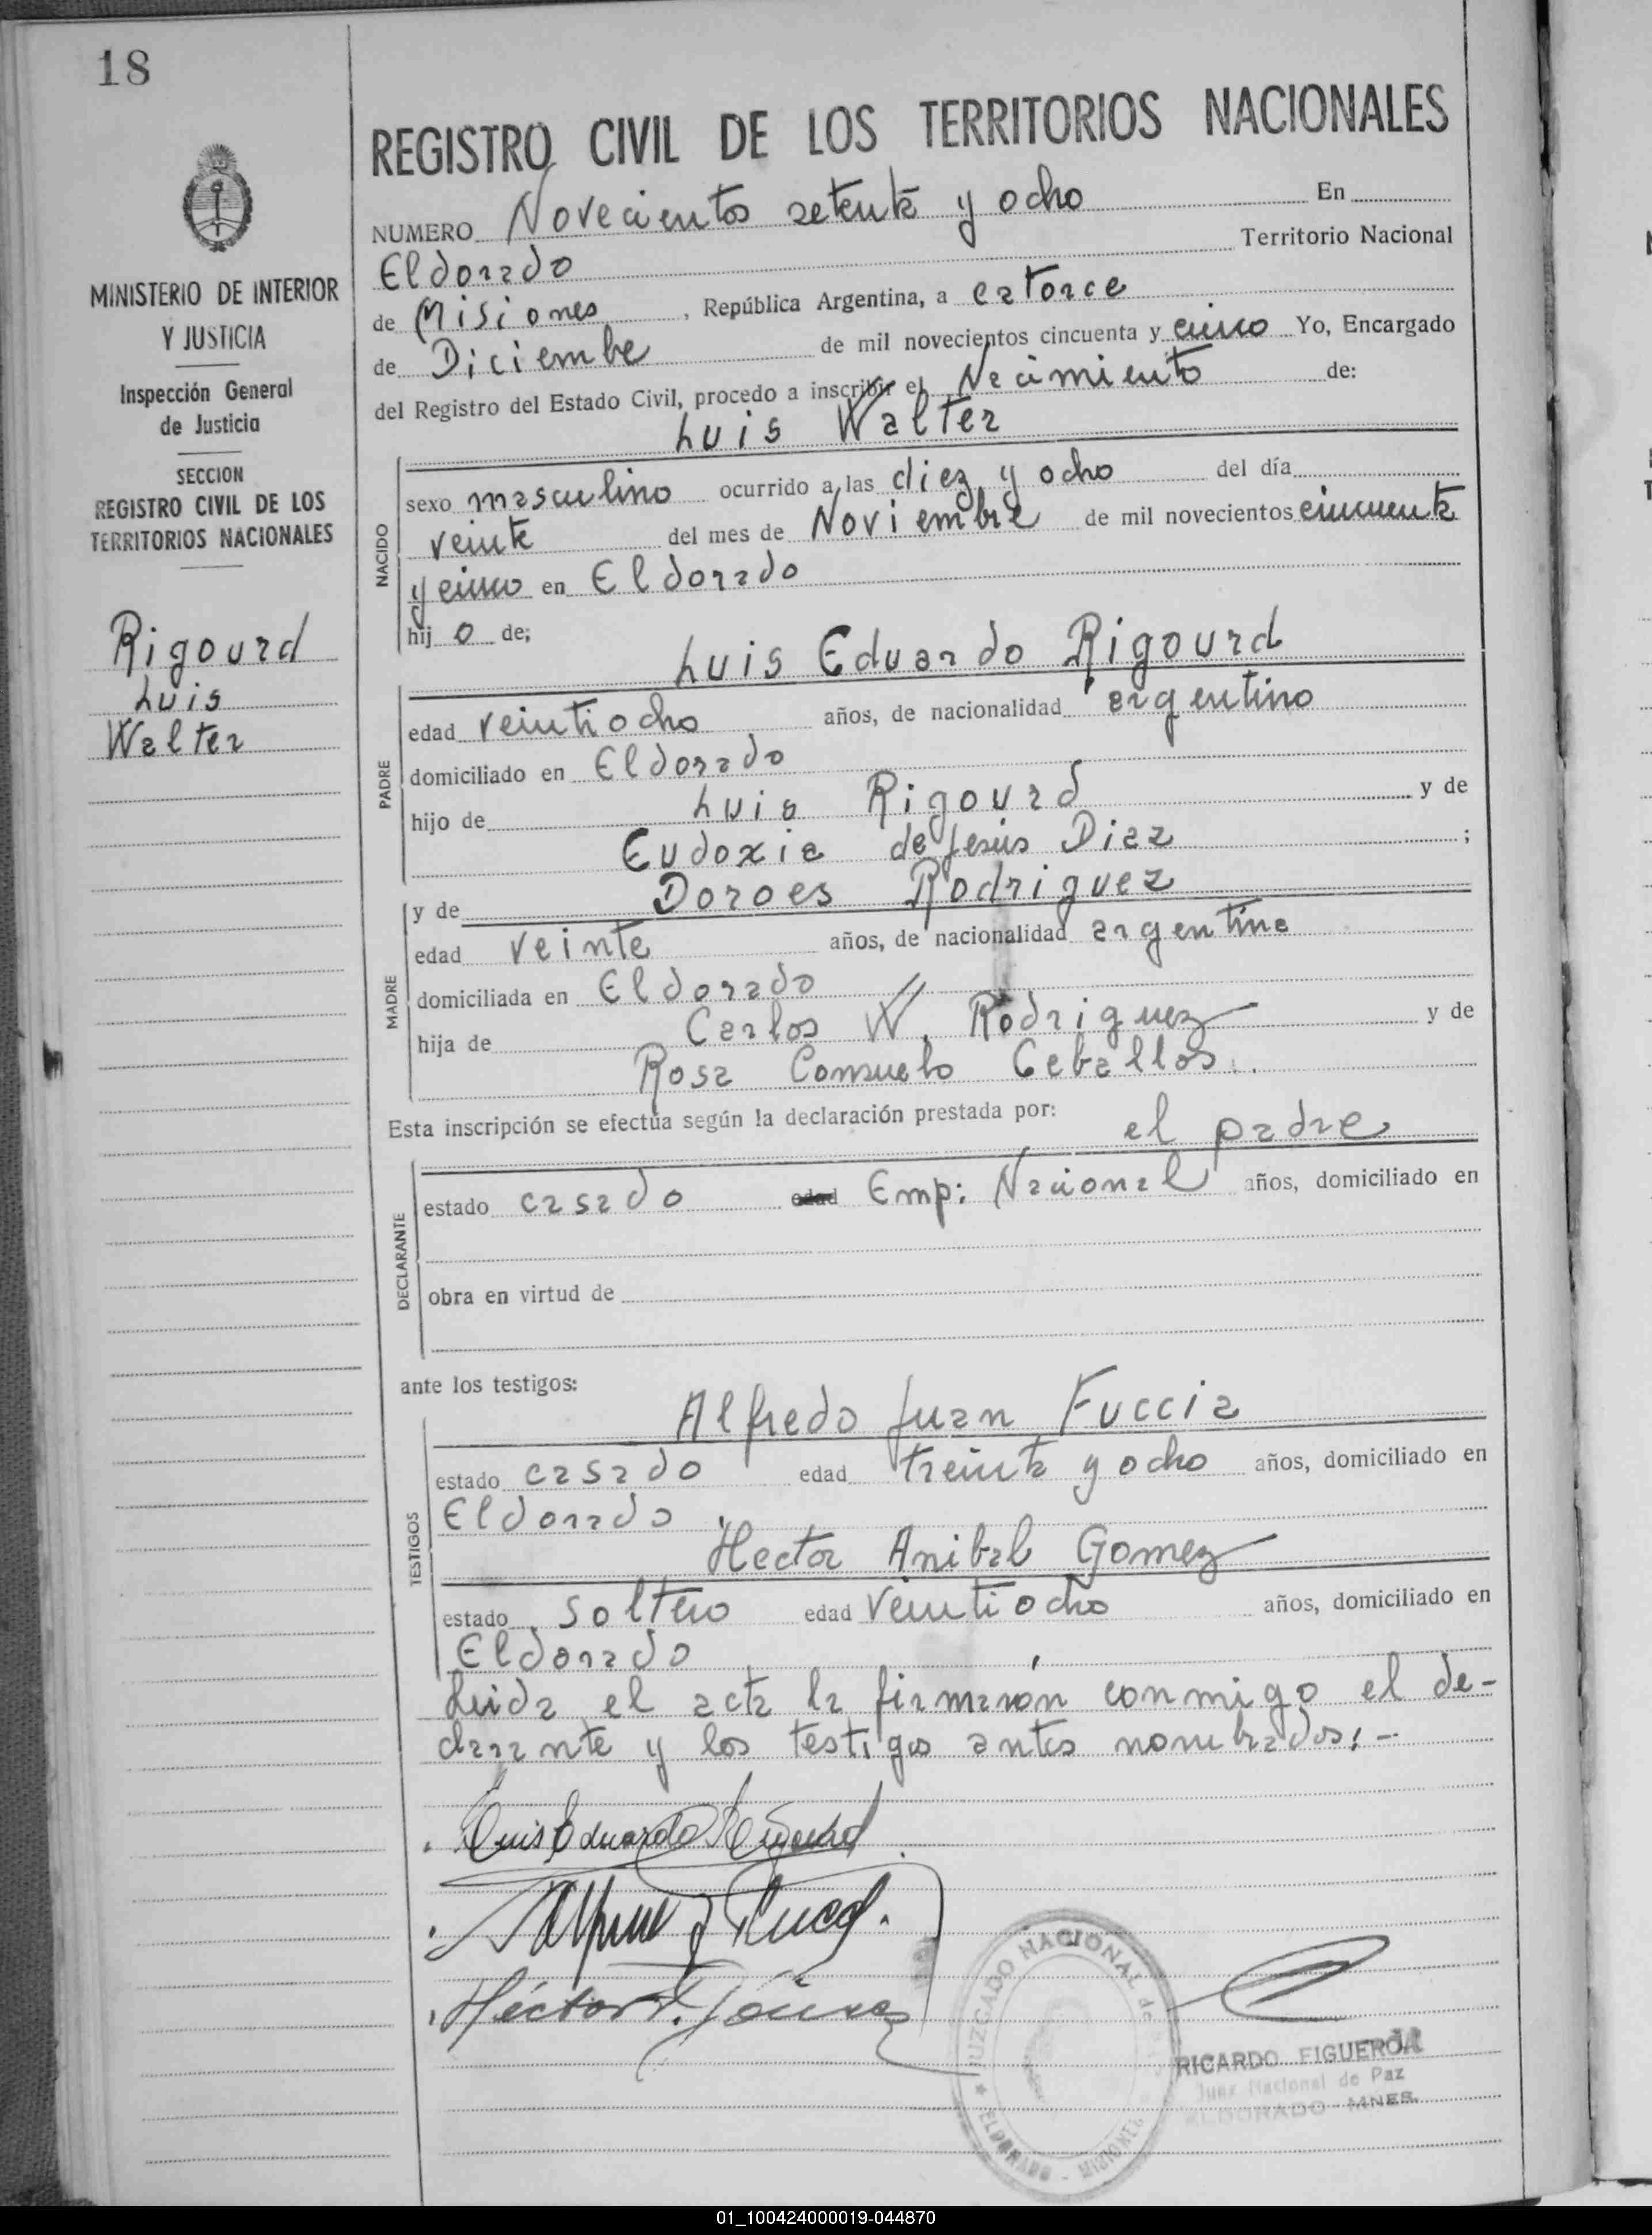 18
MINISTERIO DE INTERIOR
Y JUSTICIA
Inspección General
de Justicia
SECCION
REGISTRO CIVIL DE LOS
TERRITORIOS NACIONALES
Rigourd
Luis
Walter
REGISTRO CIVIL DE LOS TERRITORIOS NACIONALES
NUMERO Novecientos setenta y ocho En
Eldorado Territorio Nacional
de Misiones, República Argentina, a catorce
de Diciembe de mil novecientos cincuenta y cinco Yo, Encargado
del Registro del Estado Civil, procedo a inscribir el Nacimiento de:
Luis Walter
NACIDO
sexo masculino ocurrido a las diez y ocho del día
veinte del mes de Noviembre de mil novecientos cincuenta
y cinco en Eldorado
hij o de;
Luis Eduardo Rigourd
PADRE
edad veintiocho años, de nacionalidad argentino
domiciliado en Eldorado
hijo de Luis Rigourd y de
Eudoxia de Jesús Diaz ;
y de Doroes Rodriguez
MADRE
edad veinte años, de nacionalidad argentina
domiciliada en Eldorado
hija de Carlos W. Rodriguez y de
Rosa Consuelo Ceballos.
Esta inscripción se efectúa según la declaración prestada por:
el padre
DECLARANTE
estado casado edad Emp: Nacional años, domiciliado en
obra en virtud de
ante los testigos:
Alfredo Juan Fuccia
TESTIGOS
estado casado edad treinta y ocho años, domiciliado en
Eldorado.
Hector Anibal Gomez
estado soltero edad veintiocho años, domiciliado en
Eldorado
Leida el acta la firmaron conmigo el de-
clarante y los testigos antes nombrados:-
Luis Eduardo Rigourd
JUZGADO NACIONAL de
ELDORADO - MISIONES
RICARDO FIGUEROA
Juez Nacional de Paz
ELDORADO - MNES.
01_100424000019-044870